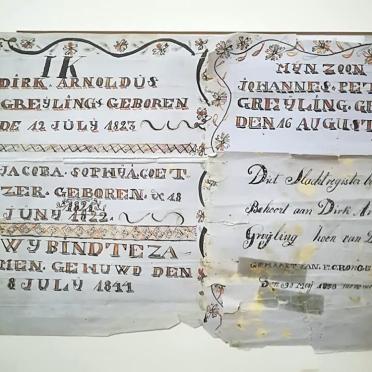 IK
DIRK. ARNOLDUS
GREYLING. GEBOREN
DE 12 JULY 1823
JACOBA. SOPHYA COET
ZER. GEBOREN. 18
1821
JUNY 1822.
WY BIND TE ZA
MEN. GEHUWD DEN
8 JULY 1841
MYN ZOON
JOHANNES. PET
GREYLING. GE
DEN 16 AUGUST
Dit Slachtregister b
Behoort aan Dirk. A
Greyling Zoon van
GEMAAKT VAN
Den